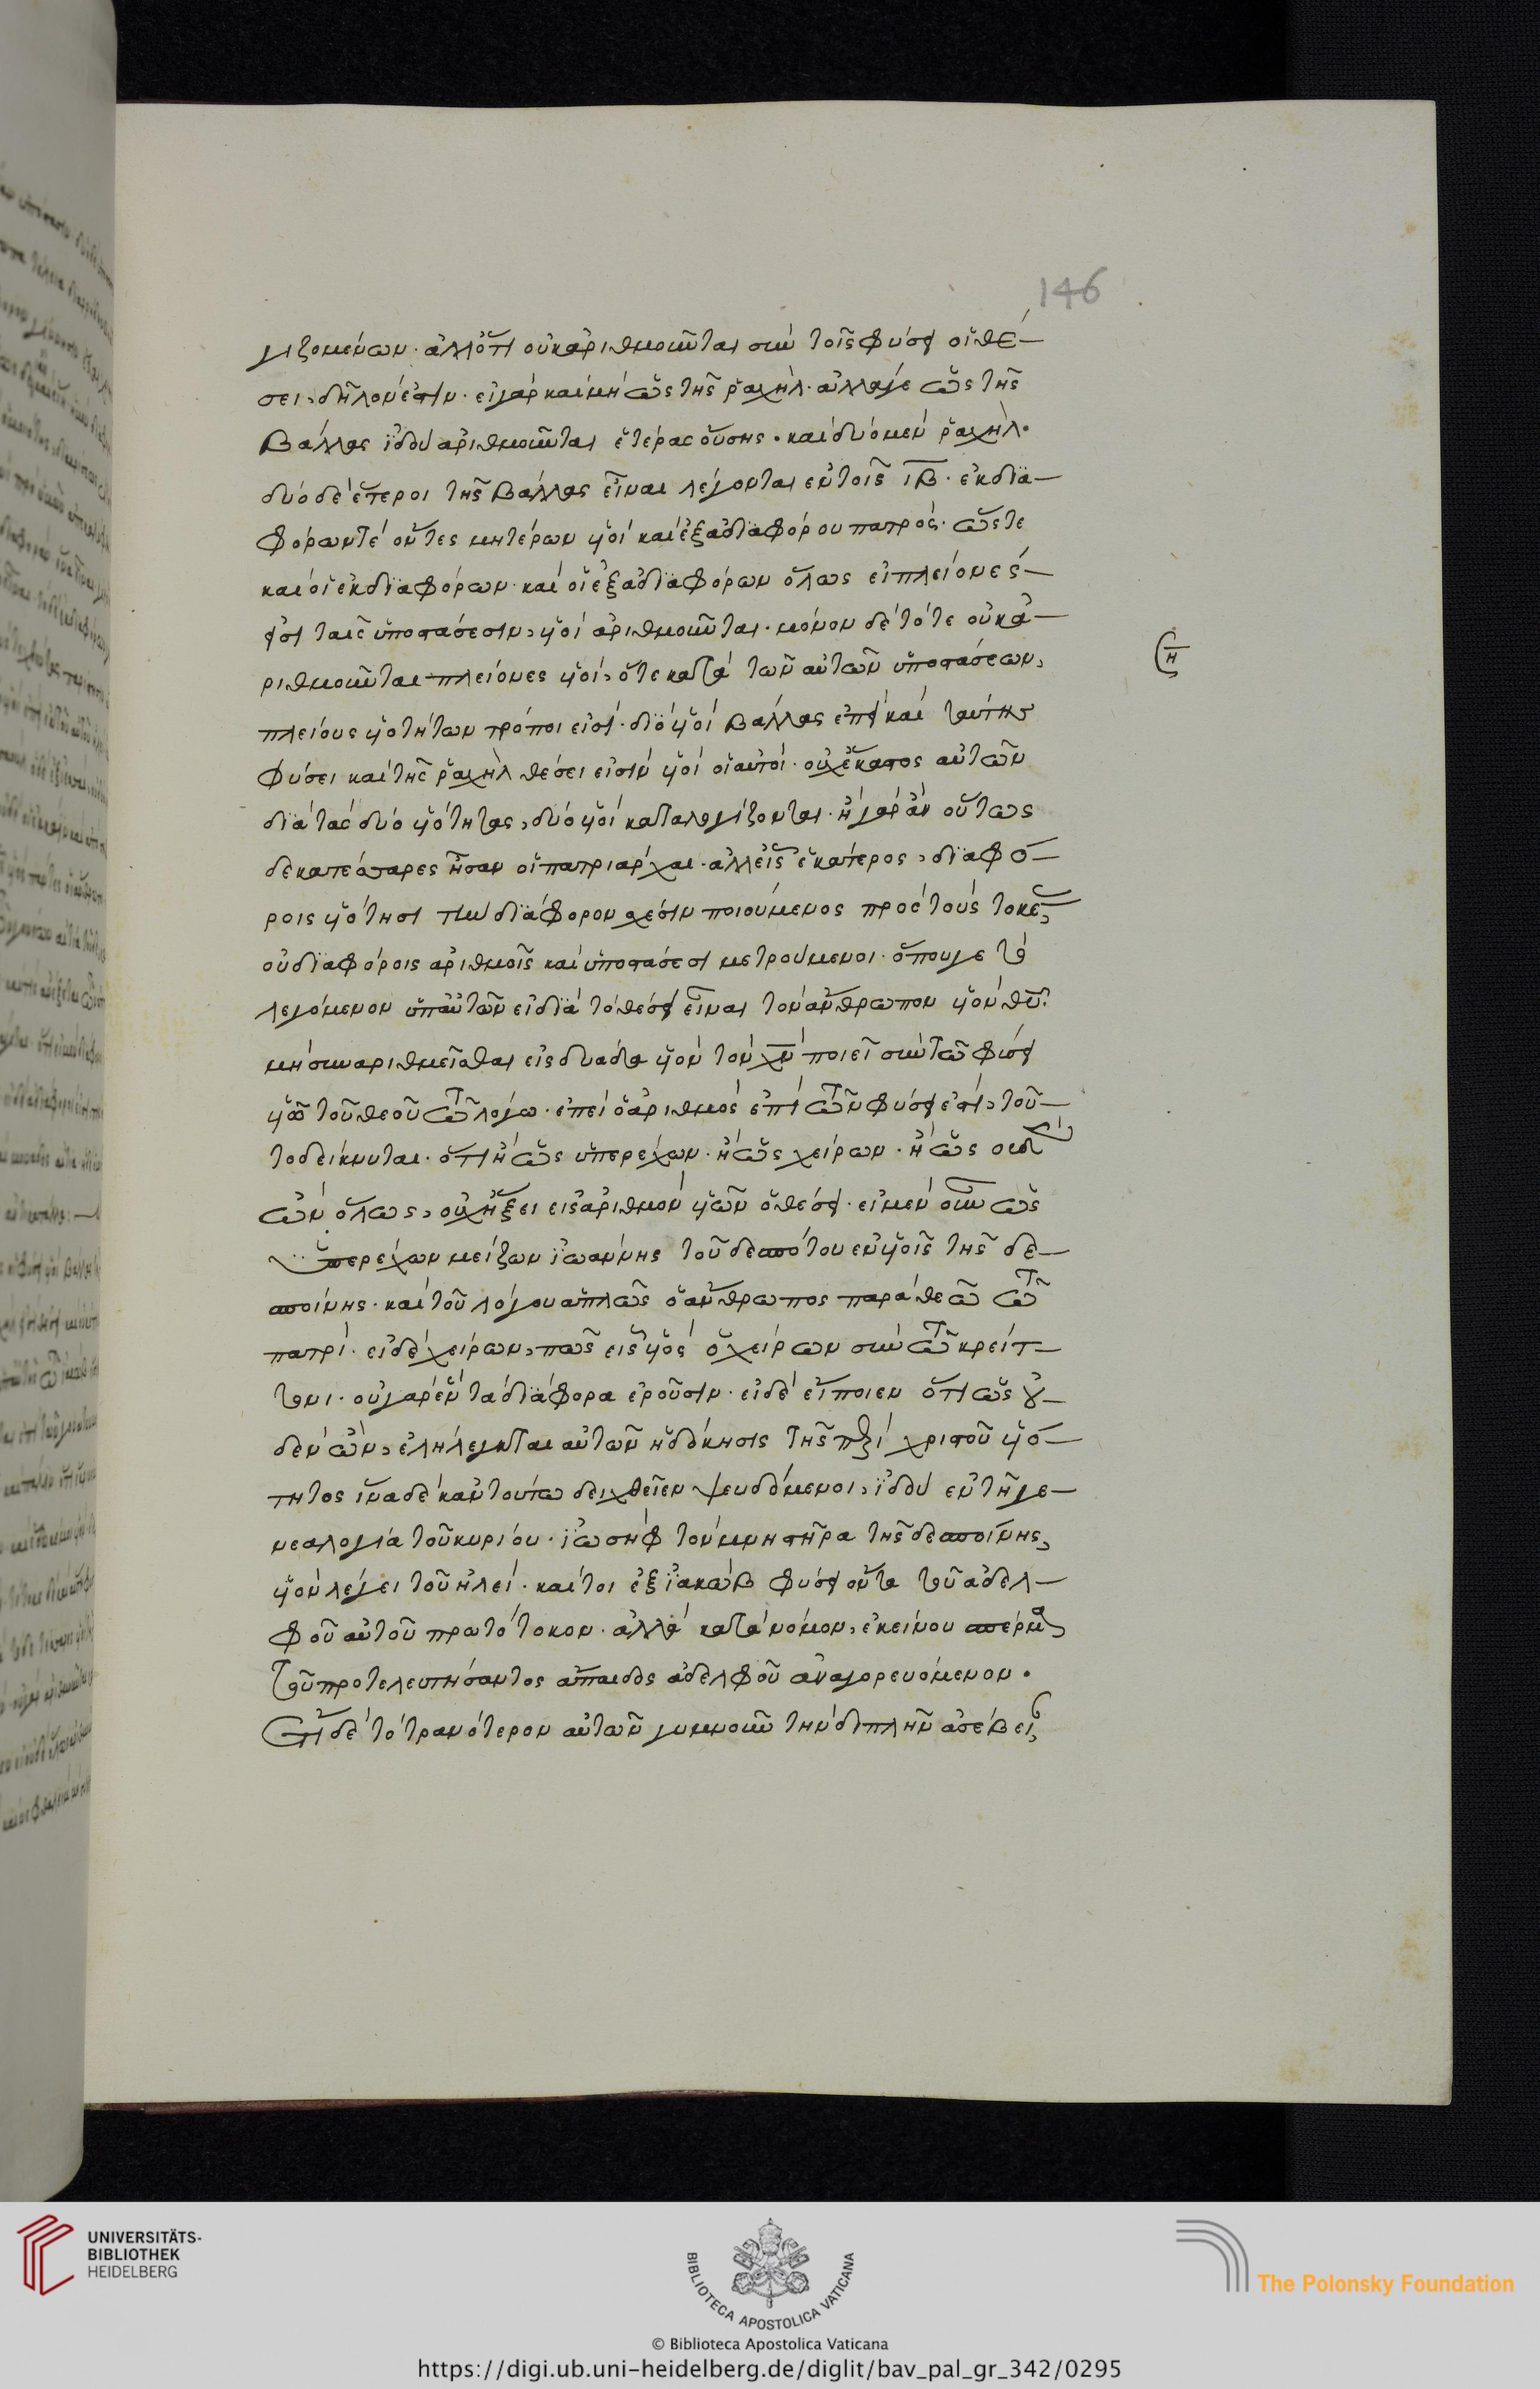 146
γιζομένων· ἀλλ' ὅτι οὐκ ἀριθμοῦνται σὺν τοῖς φύσει οἱ θέ-
σει, δῆλόν ἐστιν· εἰ γὰρ καὶ μὴ ὡς τῆς ῥαχὴλ· ἀλλά γε ὡς τῆς
Βάλλας ἰδοὺ ἀριθμοῦνται ἑτέρας οὔσης· καὶ δύο μὲν ῥαχήλ·
δύο δὲ ἕτεροι τῆς Βάλλας εἶναι λέγονται ἐν τοῖς ιβ· ἐκ δια-
φόρων τὲ ὄντες μητέρων υἱοὶ καὶ ἐξ ἀδιαφόρου πατρός· ὥστε
καὶ οἱ ἐκ διαφόρων· καὶ οἱ ἐξ ἀδιαφόρων ὅλως εἰ πλείονές-
εἰσι ταῖς ὑποστάσεσιν, υἱοὶ ἀριθμοῦνται· μόνον δὲ τότε οὐκ ἀ-
ριθμοῦνται πλείονες υἱοί, ὅτε κατὰ τῶν αὐτῶν ὑποστάσεων,
(η
πλείους υἱοτήτων τρόποι εἰσί· διὸ υἱοὶ Βάλλας ἐπεὶ καὶ ταύτης
φύσει καὶ τῆς ῥαχὴλ θέσει εἰσὶν υἱοὶ οἱ αὐτοί· οὐχ ἕκαστος αὐτῶν
διὰ τὰς δύο υἱότητας, δύο υἱοὶ καταλογίζονται· ἢ γὰρ ἂν οὕτως
δεκατέσσαρες ἦσαν οἱ πατριάρχαι· ἀλλ' εἷς ἑκάτερος, διαφό-
ροις υἱότησι τὴν διάφορον σχέσιν ποιούμενος πρὸς τοὺς τοκεῖς,
οὐ διαφόροις ἀριθμοῖς καὶ ὑποστάσεσι μετρούμενοι· ὅπου γε τὸ
λεγόμενον ὑπ' αὐτῶν εἰ διὰ τὸ θέσει εἶναι τὸν ἄνθρωπον υἱὸν θυ
μὴ συναριθμεῖσθαι εἰς δυάδα υἱὸν τὸν χν ποιεῖ σὺν τῷ φύσει
υἱῷ τοῦ θεοῦ τῷ λόγω· ἐπεὶ ὁ ἀριθμὸς ἐπὶ τῶν φύσει ἐστί, τοῦ-
το δείκνυται· ὅτι ἢ ὡς ὑπερέχων· ἢ ὡς χείρων· ἢ ὡς οὐδὲν
ὢν ὅλως, οὐχ ἥξει εἰς ἀριθμὸν υἱῶν ὁ θέσει· εἰ μὲν οὖν ὡς
ὑπερέχων μείζων ἰωάννης τοῦ δεσπότου ἐν υἱοῖς τῆς δε-
σποίνης· καὶ τοῦ λόγου ἁπλῶς ὁ ἄνθρωπος παρὰ θεῶ τῶ
πατρί· εἰ δὲ χείρων, πῶς εἷς υἱὸς ὁ χείρων σὺν τῷ κρείτ-
τονι· οὐ γὰρ ἓν τὰ διάφορα ἐροῦσιν· εἰ δὲ εἴποιεν ὅτι ὡς οὐ-
δὲν ὢν, ἐλήλεγκται αὐτῶν ἡ δόκησις τῆς περὶ χριστοῦ υἱό-
τητος ἵνα δὲ κἂν τούτω δειχθεῖεν ψευδόμενοι, ἰδοὺ ἐν τῇ γε-
νεαλογία τοῦ κυρίου· ἰωσὴφ τὸν μνηστῆρα τῆς δεσποίνης,
υἱὸν λέγει τοῦ ἡλεί· καίτοι ἐξ ἰακὼβ φύσει ὄντα τοῦ ἀδελ-
φοῦ αὐτοῦ πρωτότοκον· ἀλλὰ κατὰ νόμον, ἐκείνου σπέρμα,
τοῦ προτελευτήσαντος ἄπαιδος ἀδελφοῦ ἀναγορευόμενον·
Ἔτι δὲ τὸ τρανότερον αὐτῶν γυμνοῦν τὴν διπλῆν ἀσέβειαν,
UNIVERSITÄTS-
BIBLIOTHEK
HEIDELBERG
BIBLIOTECA APOSTOLICA VATICANA
© Biblioteca Apostolica Vaticana
The Polonsky Foundation
https://digi.ub.uni-heidelberg.de/diglit/bav_pal_gr_342/0295